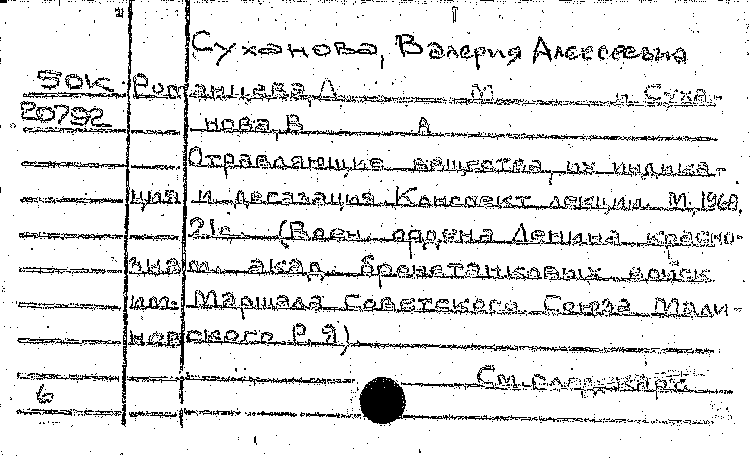 Суханова, Валерия Алексеевна
50К Романцева, Л М и Суха-
20792 нова, В А
Отравляющие вещества, их индика-
ция и дегазация. Конспект лекции. М., 1968,
21с. (Воен. ордена Ленина красно-
знам. акад. бронетанковых войск
им. Маршала Советского Союза Мали-
новского Р. Я)
См. след. карт
6